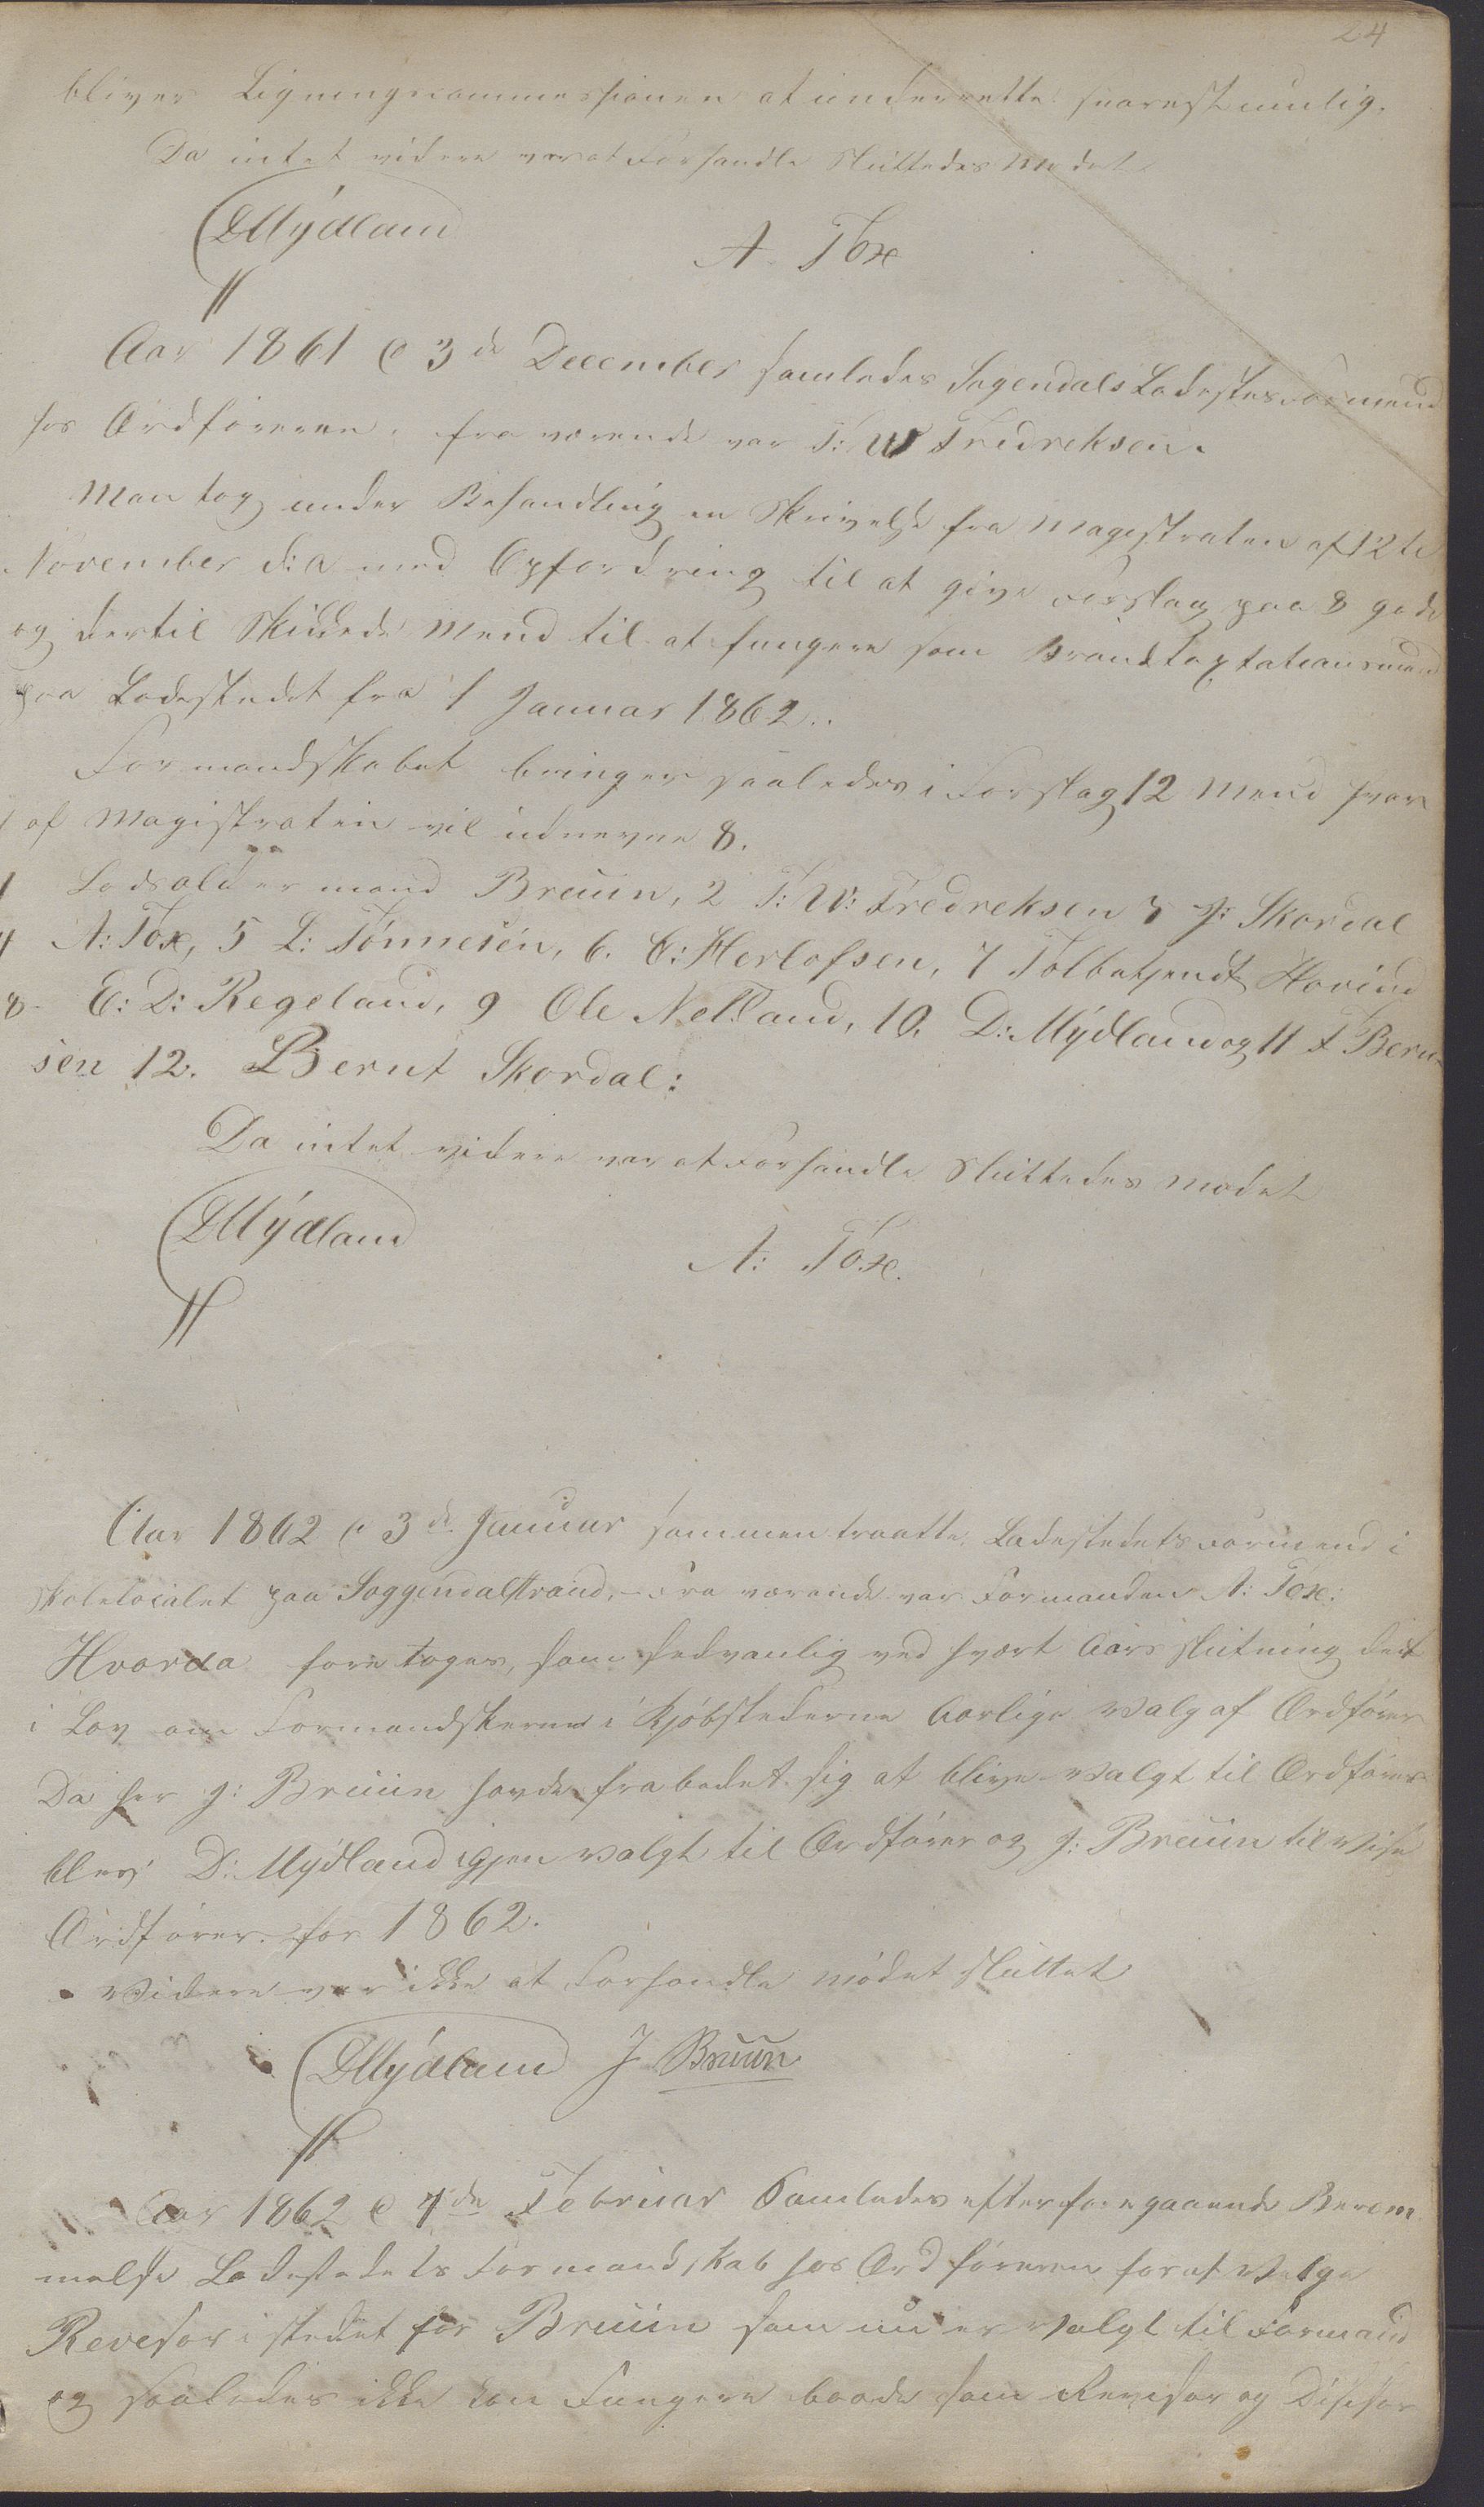 24
bliver Ligningscommessionen at underrette snarest mulig.
Da intet videre var at Forhandle Sluttedes Mødet
DMydland
A Tox
Aar 1861 d 3de December samledes Sogendals Ladesteds Formænd
hos Ordføreren, fraværende var T: W Fredreksen.
Man tog under Behandling en Skrivelse fra Magistraten af 12te
November d: A med Opfordring til at give Forslag paa 8 gode
og dertil Skikkede Mænd til at fungere som Brandtaxtationsmænd
paa Ladestedet fra 1 Januar 1862..
Formandskabet bringer saaledes i Forslag 12 Mænd hvor
af Magistraten vil udnevne 8.
1 Lodsoldermand Bruun, 2 T: W: Fredreksen 3 J: Skordal
4 A: Tox, 5 L: Tønnesen, 6. C: Herlofsen, 7 Tolbetjendt Hovind
8 E: D: Regeland, 9 Ole Netland, 10. D: Mydland og 11 T Bern-
sen 12. Bernt Skordal:
Da intet videre var at Forhandle Sluttedes Mødet
DMydland
A: Tox.
Aar 1862 d 3de Januar sammentraatte Ladestedets Formænd i
Skolelocalet paa Soggendalstrand, - Fraværende var Formanden A: Tox:
Hvorda foretoges, som sedvanlig ved hvert Aars slutning det
i Lov om Formandskerne i Kjøbstederne Aarlige Valg af Ordfører
Da her J: Bruun havde frabedet sig at blive Valgt til Ordfører
blev D: Mydland igjen Valgt til Ordfører og J: Bruun til Vise
Ordfører for 1862.
Videre var ikke at Forhandle mødet sluttet
DMydland J Bruun
Aar 1862 d 4de Februar Samledes efter foregaaende Beram
melse Ladestedets Formandskab hos Ordføreren for at Velge
Revesor i stedet for Bruun som nu er Valgt til Formand
og saaledes ikke kan Fungere baade som Revisor og Disisor